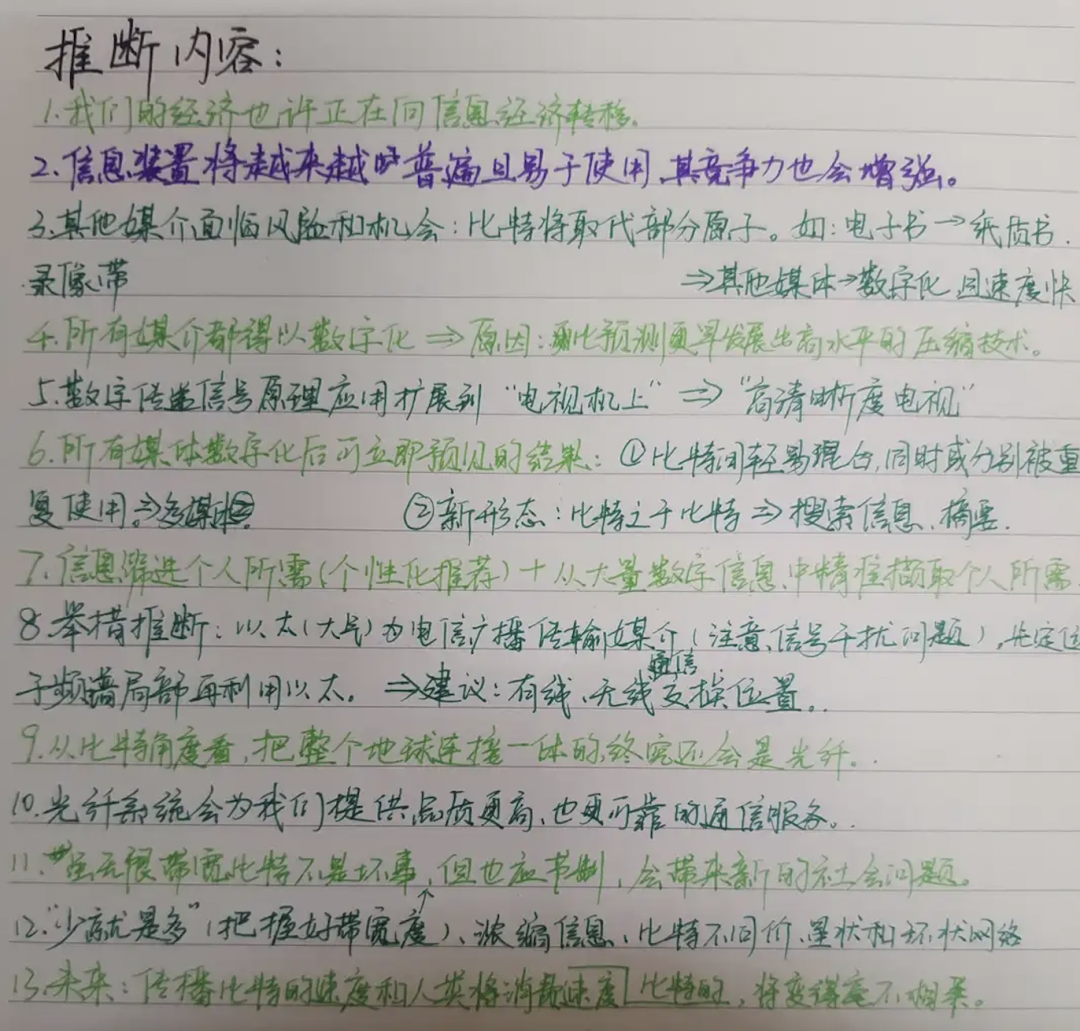 推断内容：
1.我们的经济也许正在向信息经济转移。
2.信息装置将越来越的普遍且易于使用,其竞争力也会增强。
3.其他媒介面临风险和机会：比特将取代部分原子。如：电子书→纸质书.
录像带 ⇒其他媒体→数字化,且速度快
4.所有媒介都得以数字化⇒原因：比预测更早发展出高水平的压缩技术。
5.数字传送信号原理应用扩展到“电视机上”⇒“高清晰度电视”
6.所有媒体数字化后可立即预见的结果：①比特间轻易混合,同时或分别被重
复使用.⇒多媒体 ②新形态：比特之于比特⇒搜索信息、摘要.
7.信息筛选个人所需(个性化推荐)+从大量数字信息中精准撷取个人所需
8.举措推断：以太(大气)为电信广播传输媒介(注意,信号干扰问题),先定位
于频谱局部再利用以太. ⇒建议：有线、无线通信交换位置..
9.从比特角度看,把整个地球连接一体的终究还会是光纤..
10.光纤系统会为我们提供品质更高,也更可靠的通信服务..
11.无限带宽比特不是坏事,但也应节制,会带来新的社会问题。
12.“少就是多”(把握好带宽度)、浓缩信息、比特不同价、星状和环状网络
13.未来：传播比特的速度和人类将消耗速度比特的,将变得毫不相关。